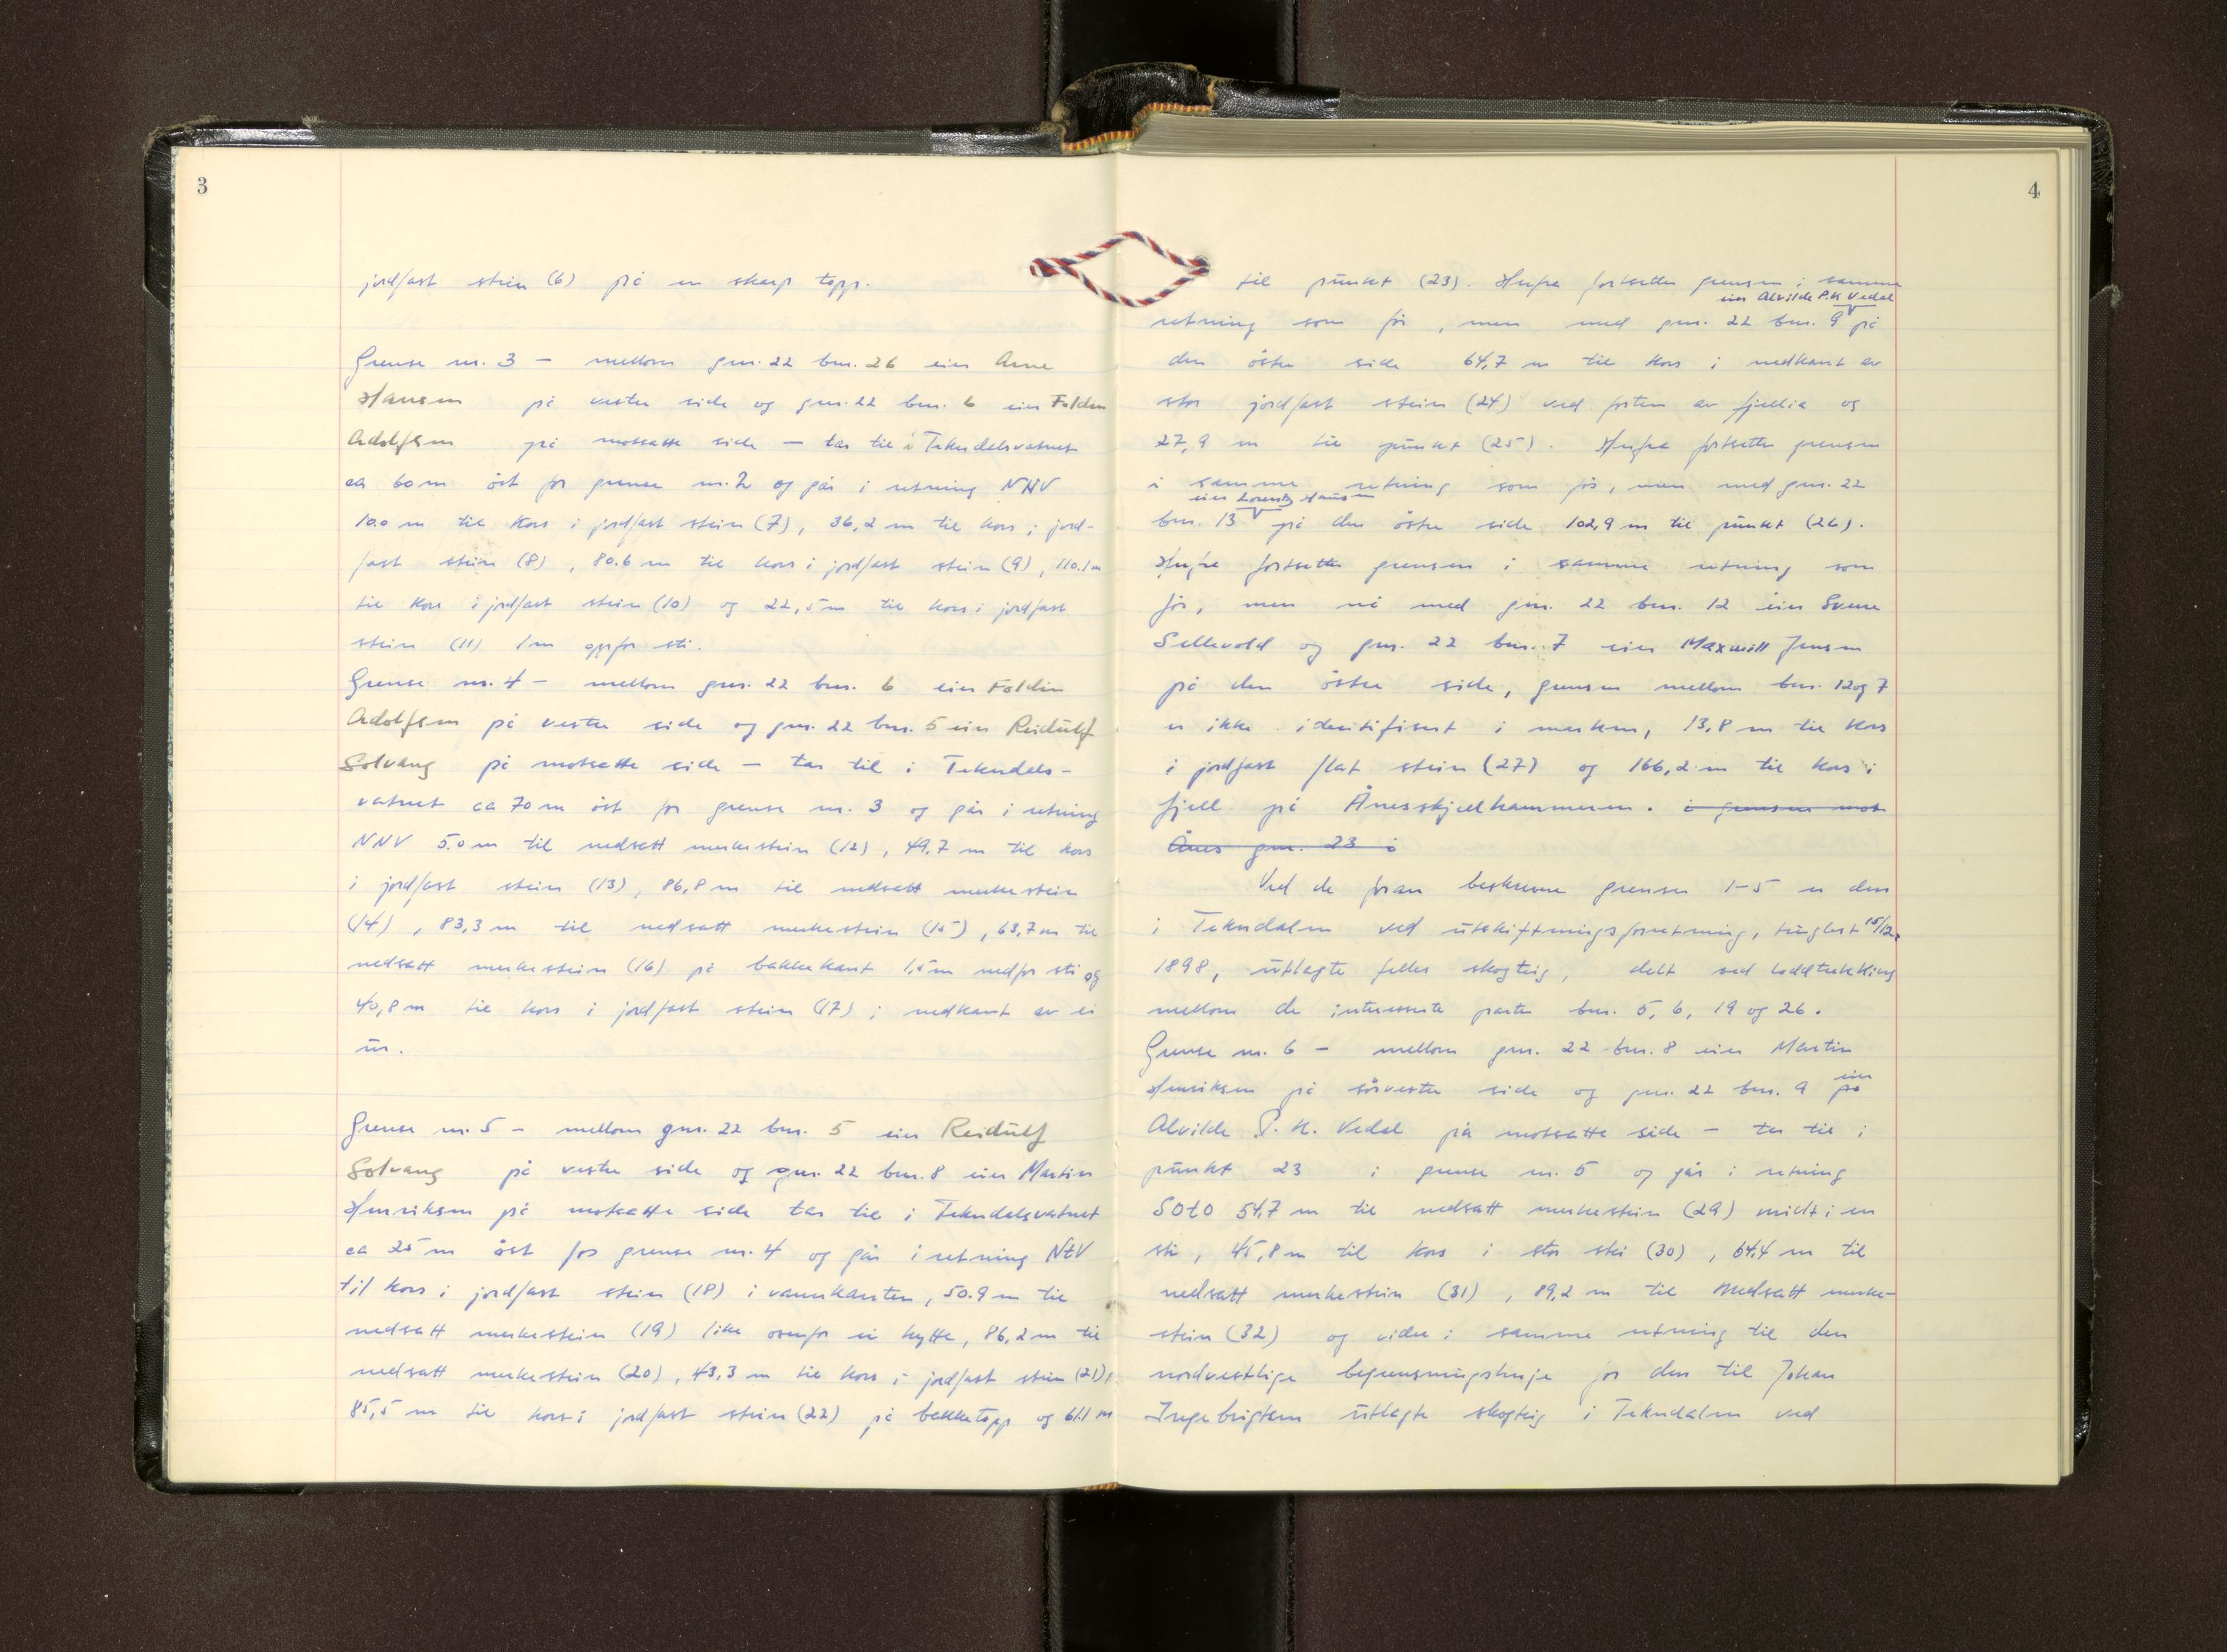 3
jordfast stein (6) på en skarp topp.
Grense nr. 3 - mellom gnr. 22 bnr. 26 eier Arne
Hansen på vestre side og gnr. 22 bnr. 6 eier Foldin
Adolfsen på motsatte side - tar til i Tekndalsvatnet
ca 60 m øst for grense nr. 2 og går i retning NNV
10.0 m til kors i jordfast stein (7), 36,2 m til kors i jord-
fast stein (8), 80.6 m til kors i jordfast stein (9), 110.1 m
til kors i jordfast stein (10) og 22,5 m til kors i jordfast
stein (11) 1 m oppfor sti.
Grense nr. 4 - mellom gnr. 22 bnr. 6 eier Foldin
Adolfsen på vestre side og gnr. 22 bnr. 5 eier Reidulf
Solvang på motsatte side - tar til i Tekndals-
vatnet ca 70 m øst for grense nr. 3 og går i retning
NNV 5.0 m til nedsatt merkestein (12), 49.7 m til kors
i jordfast stein (13), 86,8 m til nedsatt merkestein
(14), 83,3 m til nedsatt merkestein (15), 63,7 m til
nedsatt merkestein (16) på bakkekant 1,5 m nedfor sti og
40,8 m til kors i jordfast stein (17) i nedkant av ei
ur.
Grense nr. 5 - mellom gnr. 22 bnr. 5 eier Reidulf
Solvang på vestre side og gnr. 22 bnr. 8 eier Martin
Henriksen på motsatte side tar til i Tekndalsvatnet
ca 25 m øst for grense nr. 4 og går i retning NtV
til kors i jordfast stein (18) i vannkanten, 50.9 m til
nedsatt merkestein (19) like ovenfor ei hytte, 86,2 m til
nedsatt merkestein (20), 43,3 m til kors i jordfast stein (21),
85,5 m til kors i jordfast stein (22) på bakketopp og 61.1 m
4
til punkt (23). Herfra fortsetter grensen i samme
eier Alvilde P.K Vedal
retning som før, men med gnr. 22 bnr. 9 på
den østre side 64,7 m til kors i nedkant av
stor jordfast stein (24) ved foten av fjellia og
27,9 m til punkt (25). Herfra fortsetter grensen
i samme retning som før, men med gnr. 22
eier Lorentz Hansen
bnr. 13 på den østre side 102,9 m til punkt (26).
Herfra fortsetter grensen i samme retning som
før, men nå med gnr. 22 bnr. 12 eier Sverre
Sellevold og gnr. 22 bnr. 7 eier Maxmill Jensen
på den østre side, grensen mellom bnr. 12 og 7
er ikke identifisert i marken, 13,8 m til kors
i jordfast flat stein (27) og 166,2 m til kors i
fjell på Ånesskjelhammeren. i grensen mot
Ånes gnr. 23 i
Ved de foran beskrevne grenser 1-5 er den
i Tekndalen ved utskiftningsforretning, tinglest 15/12.
1898, utlagte felles skogteig, delt ved loddtrekking
mellom de interesserte parter bnr. 5, 6, 19 og 26.
Grense nr. 6 - mellom gnr. 22 bnr. 8 eier Martin
Henriksen på sørvestre side og gnr. 22 bnr. 9 på eier
Alvilde P. K. Vedal på motsatte side - tar til i
punkt 23 i grense nr. 5 og går i retning
SOtO 54,7 m til nedsatt merkestein (29) midt i en
sti, 45,8 m til kors i stor stei (30), 64,4 m til
nedsatt merkestein (31), 89,2 m til nedsatt merke-
stein (32) og videre i samme retning til den
nordvestlige begrensningslinje for den til Johan
Ingebrigtsen utlagte skogteig i Tekndalen ved